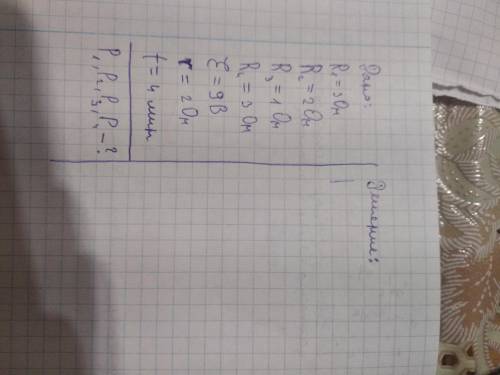 Дано:
R₁=3 Ом
R₂=2 Ом
R₃=1 Ом
R₄=3 Ом
Ɛ=9В
r=2 Ом
t=4 мин
P₁,P₂,P₃,P₄-?
Решение: